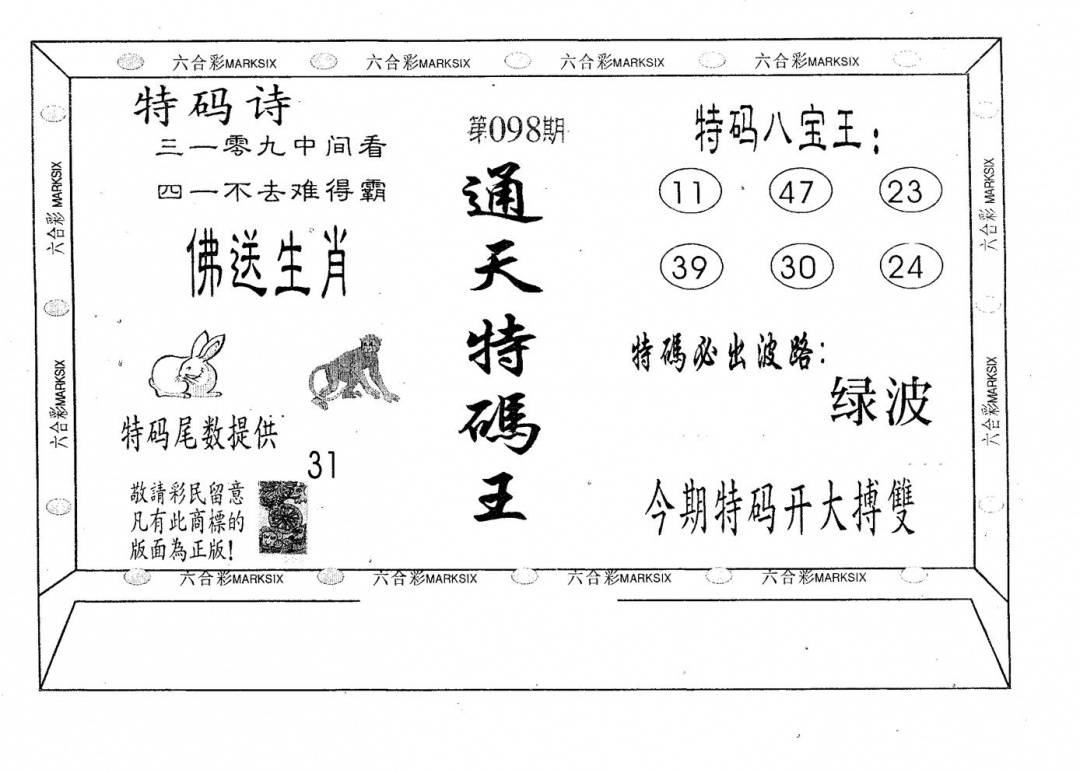 六合彩MARKSIX 六合彩MARKSIX 六合彩MARKSIX 六合彩MARKSIX
六合彩 MARKSIX
六合彩MARKSIX
特码诗
三一零九中间看
四一不去难得霸
佛送生肖
特码尾数提供
31
敬請彩民留意
凡有此商標的
版面為正版!
第098期
通天特碼王
特码八宝王:
11 47 23
39 30 24
特碼必出波路:
绿波
今期特码开大搏雙
六合彩 MARKSIX
六合彩MARKSIX
六合彩MARKSIX 六合彩MARKSIX 六合彩MARKSIX 六合彩MARKSIX